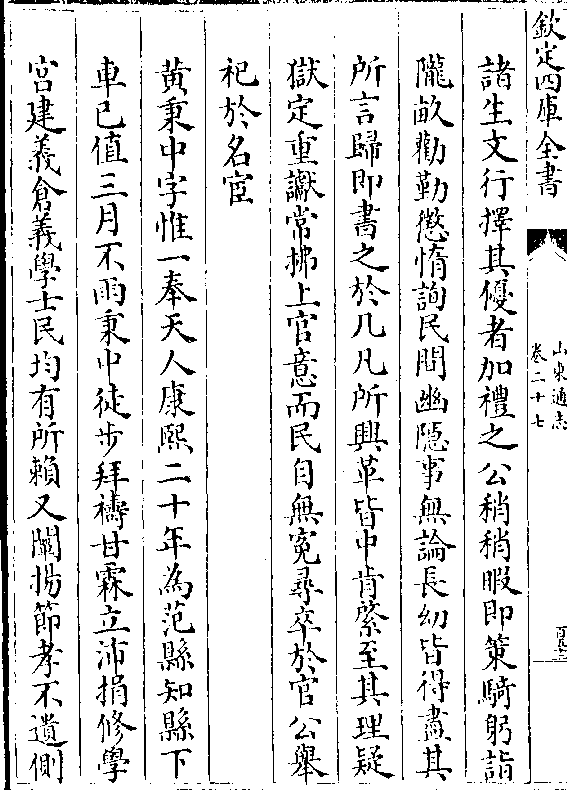 欽定四庫全書
山東通志
卷二十七
諸生文行擇其優者加禮之公稍稍暇即策騎躬詣
隴畝勸勤懲惰詢民間幽隱事無論長幼皆得盡其
所言歸即書之於几凡所興革皆中肯綮至其理疑
獄定重讞常拂上官意而民自無寃尋卒於官公舉
祀於名宦
黄秉中字惟一奉天人康熙二十年為范縣知縣下
車已值三月不雨秉中徒步拜禱甘霖立沛捐修學
宫建義倉義學士民均有所賴又闡揚節孝不遺側